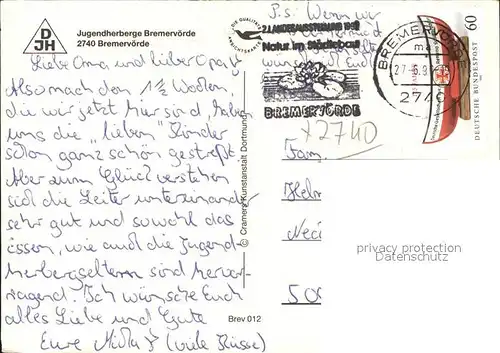 D
JH
Jugendherberge Bremervörde
2740 Bremervörde
Liebe Oma und lieber Opa,
Also nach den 1½ Wochen
die wir jetzt hier sind, haben
uns die "lieben" Kinder
schon ganz schön gestreßt.
Aber zum Glück verstehen
sich die Leiter untereinander
sehr gut und sowohl das
Essen, wie auch die Jugend-
herbergseltern sind hervor-
ragend. Ich wünsche Euch
alles Liebe und Gute
Eure (viele Küsse)
© Cramers Kunstanstalt Dortmund
Brev 012
P.S: Wenn wir
2. LANDESAUSSTELLUNG 1992
Natur im Städtebau
BREMERVÖRDE
BREMERVÖRDE
ma
2740
60
DEUTSCHE BUNDESPOST
x2740
Fam.
Helm
privacy protection
Datenschutz